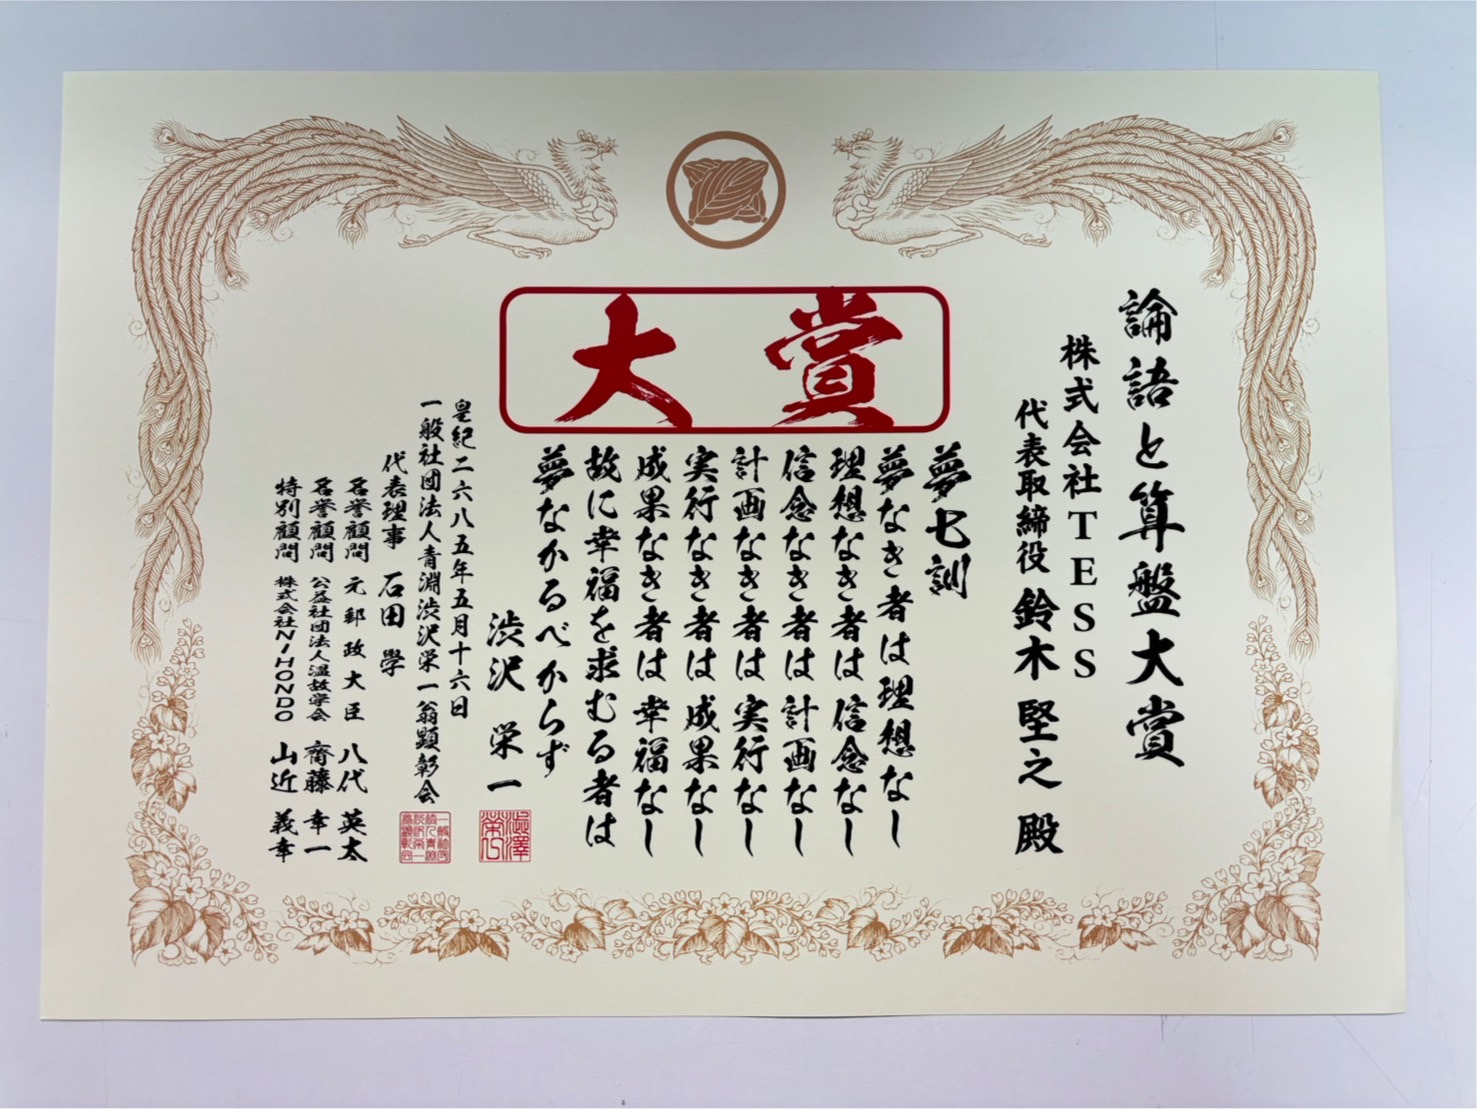 大賞
論語と算盤大賞
株式会社TESS
代表取締役 鈴木 堅之 殿
夢七訓
夢なき者は理想なし
理想なき者は 信念なし
信念なき者は 計画なし
計画なき者は 実行なし
実行なき者は 成果なし
成果なき者は 幸福なし
故に幸福を求むる者は
夢なかるべからず
渋沢 栄一
皇紀二六八五年五月十六日
一般社団法人青淵渋沢栄一翁顕彰会
代表理事 石田 學
名誉顧問 元郵政大臣 八代 英太
名誉顧問 公益社団法人温故学会 齊藤 幸一
特別顧問 株式会社NIHONDO 山近 義幸